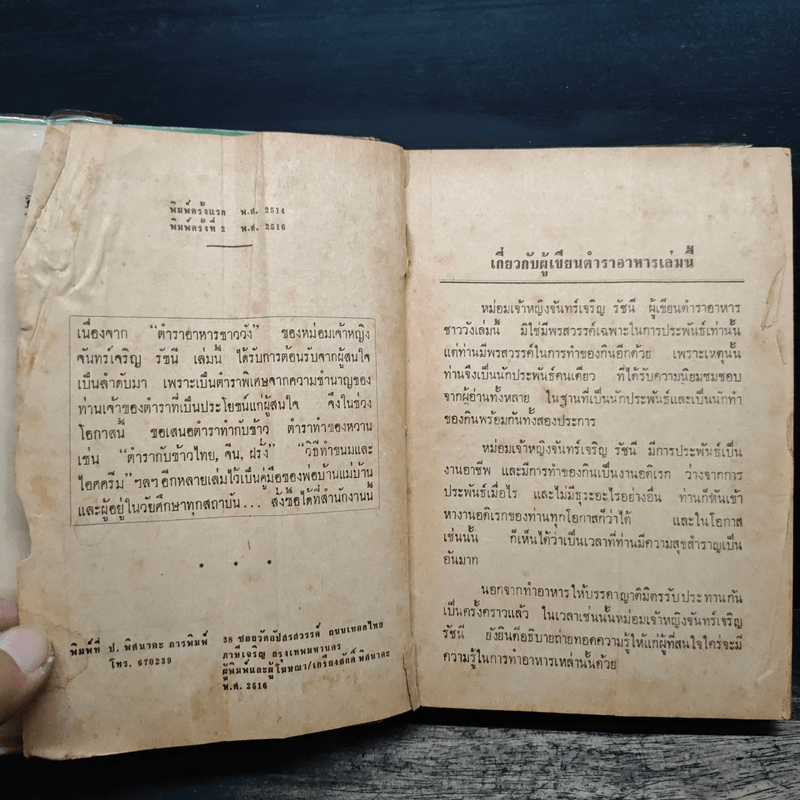 พิมพ์ครั้งแรก พ.ศ. 2514
พิมพ์ครั้งที่ 2 พ.ศ. 2516
เนื่องจาก "ตำราอาหารชาววัง" ของหม่อมเจ้าหญิง
จันทร์เจริญ รัชนี เล่มนี้ ได้รับการต้อนรับจากผู้สนใจ
เป็นลำดับมา เพราะเป็นตำราพิเศษจากความชำนาญของ
ท่านเจ้าของตำราที่เป็นประโยชน์แก่ผู้สนใจ จึงในช่วง
โอกาสนี้ ขอเสนอตำราทำกับข้าว ตำราทำของหวาน
เช่น "ตำรากับข้าวไทย, จีน, ฝรั่ง" "วิธีทำขนมและ
ไอศครีม" ฯลฯ อีกหลายเล่มไว้เป็นคู่มือของพ่อบ้านแม่บ้าน
และผู้อยู่ในวัยศึกษาทุกสถาบัน... สั่งซื้อได้ที่สำนักงานนี้
* * *
พิมพ์ที่ ป. พิศนาคะ การพิมพ์ 38 ซอยวัดอัปสรสวรรค์ ถนนเทอดไทย
โทร. 670239 ภาษีเจริญ กรุงเทพมหานคร
ผู้พิมพ์และผู้โฆษณา/เกรียงศักดิ์ พิศนาคะ
พ.ศ. 2516
เกี่ยวกับผู้เขียนตำราอาหารเล่มนี้
หม่อมเจ้าหญิงจันทร์เจริญ รัชนี ผู้เขียนตำราอาหาร
ชาววังเล่มนี้ มิใช่มีพรสวรรค์เฉพาะในการประพันธ์เท่านั้น
แต่ท่านมีพรสวรรค์ในการทำของกินอีกด้วย เพราะเหตุนั้น
ท่านจึงเป็นนักประพันธ์คนเดียว ที่ได้รับความนิยมชมชอบ
จากผู้อ่านทั้งหลาย ในฐานที่เป็นนักประพันธ์และเป็นนักทำ
ของกินพร้อมกันทั้งสองประการ
หม่อมเจ้าหญิงจันทร์เจริญ รัชนี มีการประพันธ์เป็น
งานอาชีพ และมีการทำของกินเป็นงานอดิเรก ว่างจากการ
ประพันธ์เมื่อไร และไม่มีธุระอะไรอย่างอื่น ท่านก็หันเข้า
หางานอดิเรกของท่านทุกโอกาสก็ว่าได้ และในโอกาส
เช่นนั้น ก็เห็นได้ว่าเป็นเวลาที่ท่านมีความสุขสำราญเป็น
อันมาก
นอกจากทำอาหารให้บรรดาญาติมิตรรับประทานกัน
เป็นครั้งคราวแล้ว ในเวลาเช่นนั้นหม่อมเจ้าหญิงจันทร์เจริญ
รัชนี ยังยินดีอธิบายถ่ายทอดความรู้ให้แก่ผู้ที่สนใจใคร่จะมี
ความรู้ในการทำอาหารเหล่านั้นด้วย